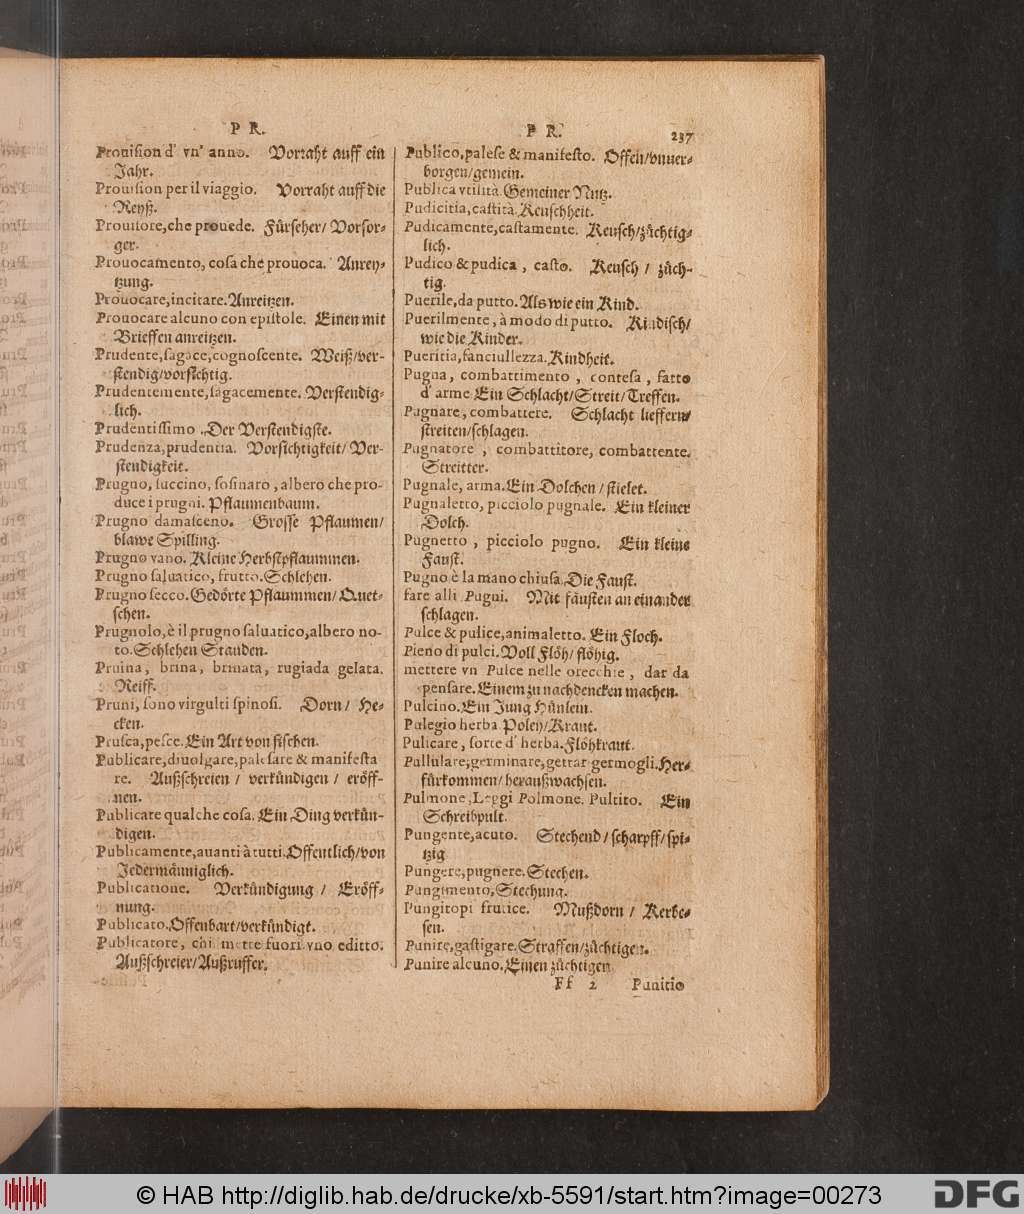 P R.
Prouiſion d' vn' anno. Vorraht auff ein
Jahr.
Prouiſion per il viaggio. Vorraht auff die
Reyß.
Prouiſore, che prouede. Fürſeher/ Vorſor-
ger.
Prouocamento, coſa che prouoca. Anrey-
tzung.
Prouocare, incitare. Anreitzen.
Prouocare alcuno con epiſtole. Einen mit
Brieffen anreitzen.
Prudente, ſagace, cognoſcente. Weiß/ ver-
ſtendig/ vorſichtig.
Prudentemente, ſagacemente. Verſtendig-
lich.
Prudentiſſimo. Der Verſtendigſte.
Prudenza, prudentia. Vorſichtigkeit/ Ver-
ſtendigkeit.
Prugno, ſuccino, ſoſinaro, albero che pro-
duce i prugni. Pflaumenbaum.
Prugno damaſceno. Groſſe Pflaumen/
blawe Spilling.
Prugno vano. Kleine Herbſtpflaummen.
Prugno ſaluatico, frutto. Schlehen.
Prugno ſecco. Gedörte Pflaummen/ Quet-
ſchen.
Prugnolo, è il prugno ſaluatico, albero no-
to. Schlehen Stauden.
Pruina, brina, brinata, rugiada gelata.
Reiff.
Pruni, ſono virgulti ſpinoſi. Dorn/ He-
cken.
Pruſca, peſce. Ein Art von fiſchen.
Publicare, diuolgare, paleſare & manifeſta
re. Außſchreien/ verkündigen/ eröff-
nen.
Publicare qualche coſa. Ein Ding verkün-
digen.
Publicamente, auanti à tutti. Offentlich/ von
Jedermänniglich.
Publicatione. Verkündigung/ Eröff-
nung.
Publicato. Offenbart/ verkündigt.
Publicatore, chi mette fuori vno editto.
Außſchreier/ Außruffer.
P R. 237
Publico, paleſe & manifeſto. Offen/ vnuer-
borgen/ gemein.
Publica vtilità. Gemeiner Nutz.
Pudicitia, caſtità. Keuſchheit.
Pudicamente, caſtamente. Keuſch/ züchtig-
lich.
Pudico & pudica, caſto. Keuſch/ züch-
tig.
Puerile, da putto. Als wie ein Kind.
Puerilmente, à modo di putto. Kindiſch/
wie die Kinder.
Pueritia, fanciullezza. Kindheit.
Pugna, combattimento, conteſa, fatto
d' arme. Ein Schlacht/ Streit/ Treffen.
Pugnare, combattere. Schlacht lieffern/
ſtreiten/ ſchlagen.
Pugnatore, combattitore, combattente.
Streitter.
Pugnale, arma. Ein Dolchen/ ſtielet.
Pugnaletto, picciolo pugnale. Ein kleiner
Dolch.
Pugnetto, picciolo pugno. Ein kleine
Fauſt.
Pugno è la mano chiuſa. Die Fauſt.
fare alli Pugni. Mit fäuſten an einander
ſchlagen.
Pulce & pulice, animaletto. Ein Floch.
Pieno di pulci. Voll Flöh/ flöhig.
mettere vn Pulce nelle orecchie, dar da
penſare. Einem zu nachdencken machen.
Pulcino. Ein Jung Hünlein.
Pulegio herba. Poley/ Kraut.
Pulicare, ſorte d' herba. Flöhkraut.
Pullulare, germinare, gettar germogli. Her-
fürkommen/ heraußwachſen.
Pulmone, Leggi Polmone. Pulpito. Ein
Schreibpult.
Pungente, acuto. Stechend/ ſcharpff/ ſpi-
tzig
Pungere, pugnere. Stechen.
Pungimento, Stechung.
Pungitopi frutice. Mußdorn/ Kerbe-
ſen.
Punire, gaſtigare. Straffen/ züchtigen.
Punire alcuno. Einen züchtigen
Ff 2 Punitio
© HAB http://diglib.hab.de/drucke/xb-5591/start.htm?image=00273
DFG